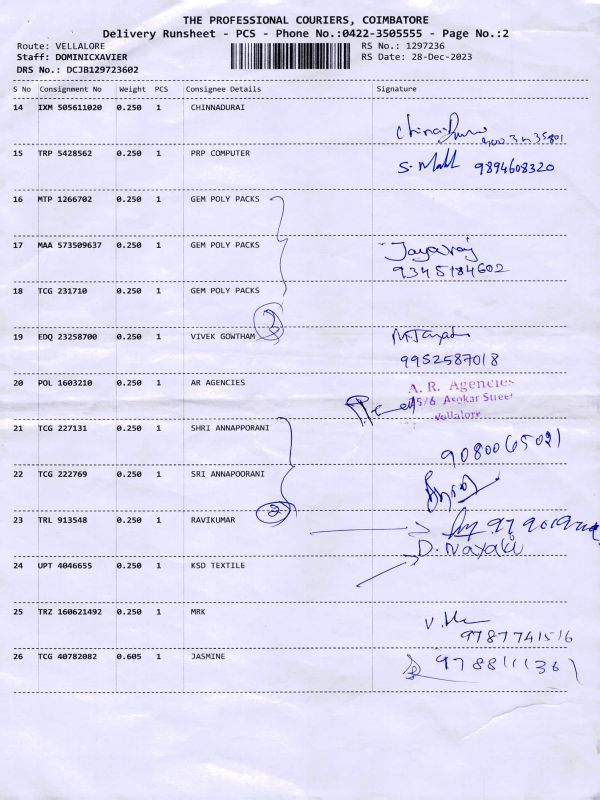 THE PROFESSIONAL COURIERS, COIMBATORE
Delivery Runsheet - PCS - Phone No.:0422-3505555 - Page No.:2
Route: VELLALORE RS No.: 1297236
Staff: DOMINICXAVIER RS Date: 28-Dec-2023
DRS No.: DCJB129723602
S No Consignment No Weight PCS Consignee Details Signature
14 IXM 505611020 0.250 1 CHINNADURAI
15 TRP 5428562 0.250 1 PRP COMPUTER
9894608320
16 MTP 1266702 0.250 1 GEM POLY PACKS
17 MAA 573509637 0.250 1 GEM POLY PACKS
Jayaraj
9345184602
18 TCG 231710 0.250 1 GEM POLY PACKS
3
19 EDQ 23258700 0.250 1 VIVEK GOWTHAM
9952587018
20 POL 1603210 0.250 1 AR AGENCIES
A. R. Agencies
Vellalore
21 TCG 227131 0.250 1 SHRI ANNAPPORANI
9080065021
22 TCG 222769 0.250 1 SRI ANNAPOORANI
2
23 TRL 913548 0.250 1 RAVIKUMAR
D. Nayaki
24 UPT 4046655 0.250 1 KSD TEXTILE
25 TRZ 160621492 0.250 1 MRK
9787741516
26 TCG 40782082 0.605 1 JASMINE
9788111367